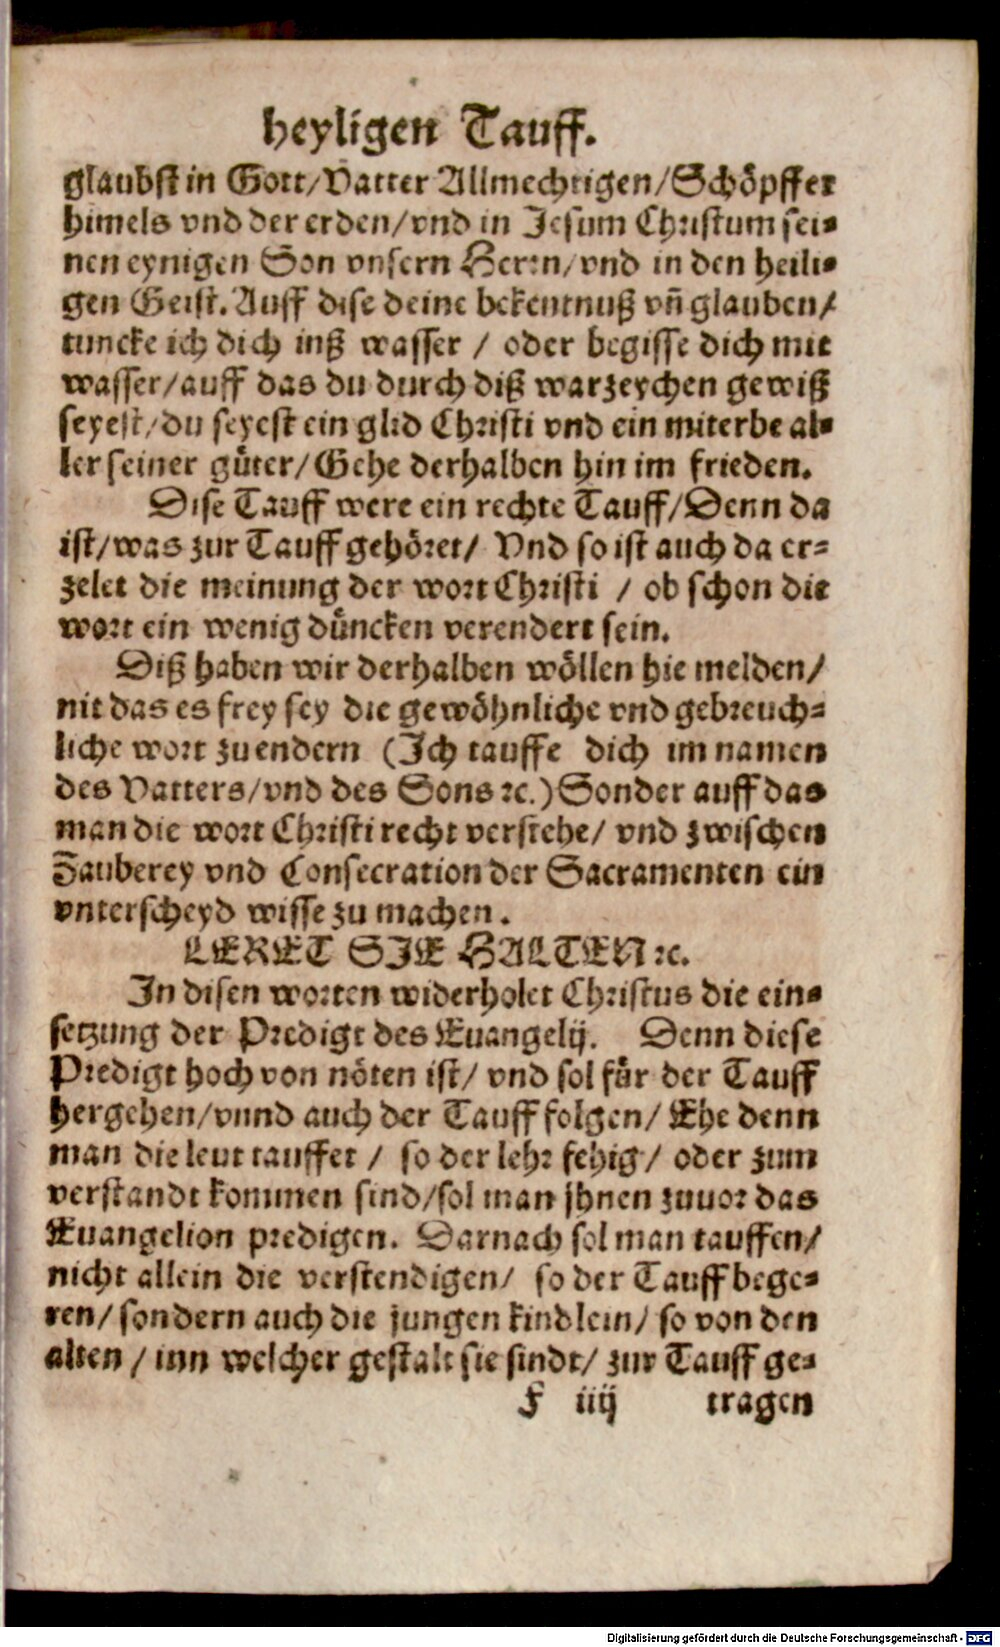 heyligen Tauff.
glaubst in Gott/Vatter Allmechtigen/Schöpffer
himels vnd der erden/vnd in Jesum Christum sei⸗
nen eynigen Son vnsern Herrn/vnd in den heili⸗
gen Geist. Auff dise deine bekentnuß vñ glauben/
tuncke ich dich inß wasser / oder begisse dich mit
wasser/auff das du durch diß warzeychen gewiß
seyest/du seyest ein glid Christi vnd ein miterbe al⸗
ler seiner güter/Gehe derhalben hin im frieden.
Dise Tauff were ein rechte Tauff/Denn da
ist/was zur Tauff gehöret/ Vnd so ist auch da er⸗
zelet die meinung der wort Christi / ob schon die
wort ein wenig düncken verendert sein.
Diß haben wir derhalben wöllen hie melden/
nit das es frey sey die gewöhnliche vnd gebreuch⸗
liche wort zu endern (Ich tauffe dich im namen
des Vatters/vnd des Sons ꝛc.) Sonder auff das
man die wort Christi recht verstehe/ vnd zwischen
Zauberey vnd Consecration der Sacramenten ein
vnterscheyd wisse zu machen.
LERET SIE HALTEN ꝛc.
In disen worten widerholet Christus die ein⸗
setzung der Predigt des Euangelij. Denn diese
Predigt hoch von nöten ist/ vnd sol für der Tauff
hergehen/vnnd auch der Tauff folgen/ Ehe denn
man die leut tauffet / so der lehr fehig/ oder zum
verstandt kommen sind/sol man jhnen zuuor das
Euangelion predigen. Darnach sol man tauffen/
nicht allein die verstendigen/ so der Tauff bege⸗
ren/ sondern auch die jungen kindlein/ so von den
alten / inn welcher gestalt sie sindt/ zur Tauff ge⸗
F iiij tragen
Digitalisierung gefördert durch die Deutsche Forschungsgemeinschaft - DFG